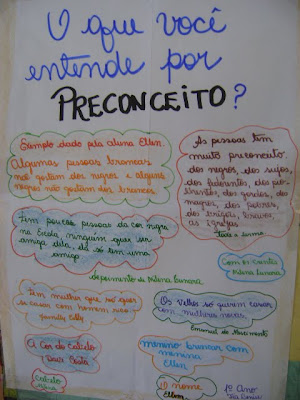 O que você
entende por
PRECONCEITO?
Exemplo dado pla aluna Ellen.
Algumas pessoas brancas
não gostam dos negros e alguns
negros não gostam dos brancos.
As pessoas tem
muito preconceito
dos negros, dos sujos,
dos fedorentos, dos
dos gordos, dos
magros, dos pobres,
as igrejas
Toda a turma
Tem poucas pessoas da cor negra
na Escola, ninguem quer ser
amiga dela, só tem uma
amiga
depoimento da Milena
Com os crentes
Milena
Tem mulher que só quer
se casar com homem rico
Os velhos só querem casar
com mulheres novas.
Emanuel do Nascimento
A Cor do Cabelo
Cabelo
menino brincar com
menina
Ellen
O nome
Ellen
1º Ano